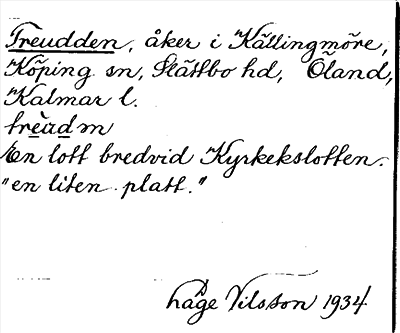 Treudden, åker i Källingmöre,
Köping sn, Slättbo hd, Öland,
Kalmar l.
trèu̇dṃ
En lott bredvid Kyrkekslotten.
"en liten platt."
Nilsson 1934